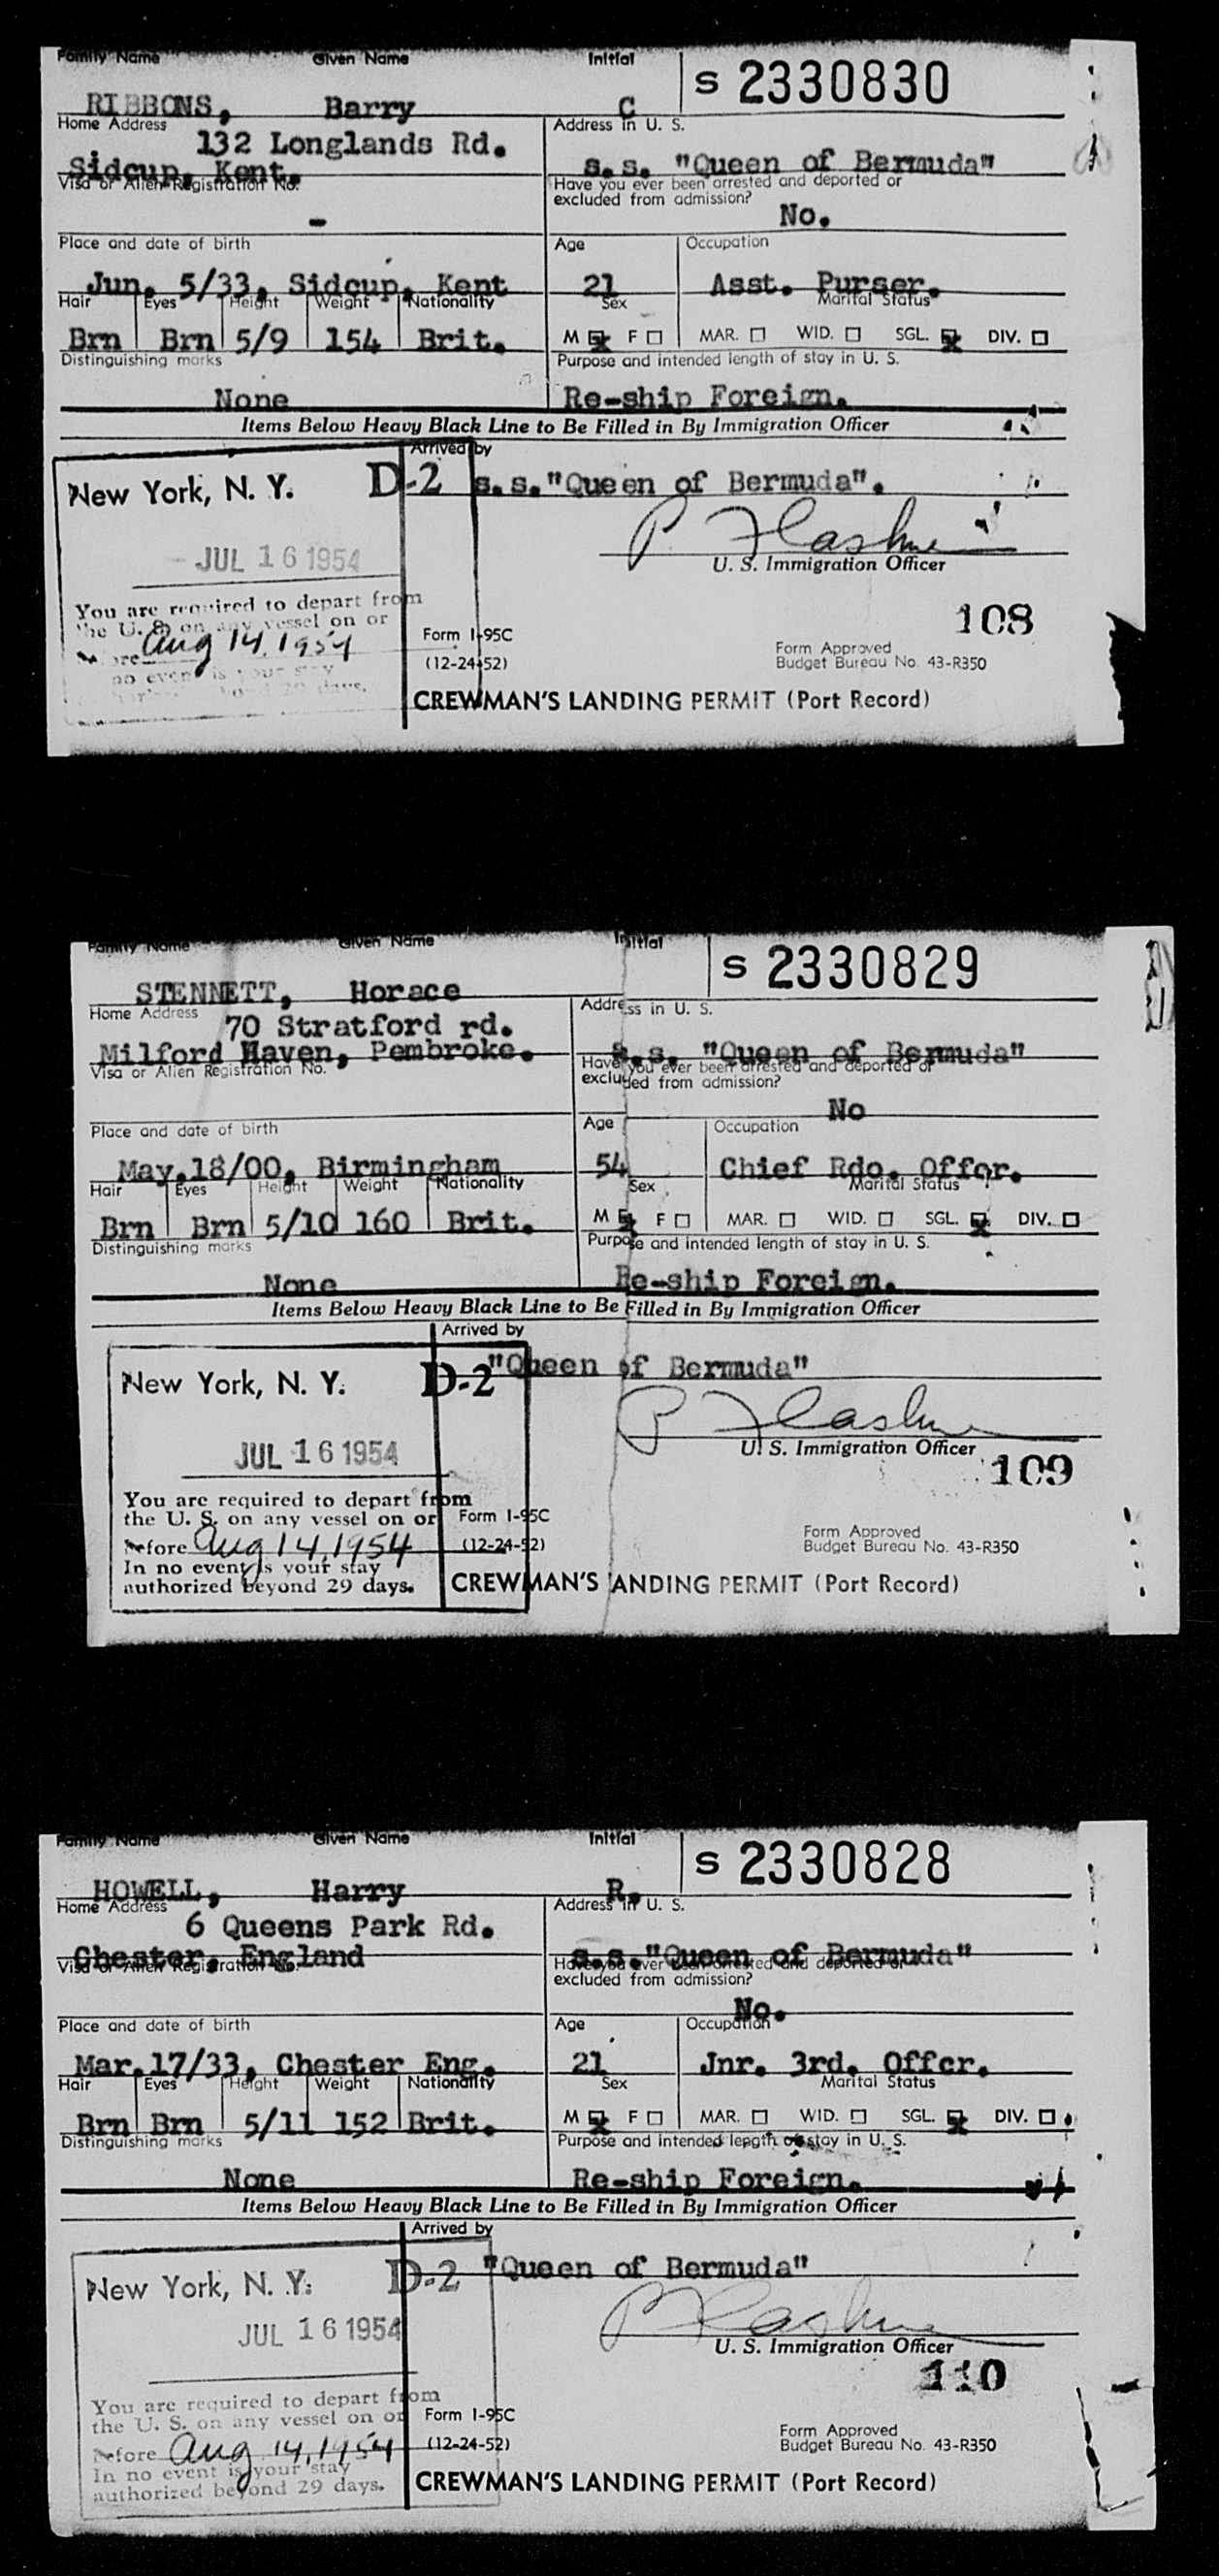 Family Name Given Name Initial
S 2330830
RIBBONS, Barry C
Home Address
132 Longlands Rd.
Sidcup, Kent.
Address in U. S.
s.s. "Queen of Bermuda"
Visa or Alien Registration No.
-
Have you ever been arrested and deported or
excluded from admission?
No.
Place and date of birth
Jun. 5/33, Sidcup, Kent
Age
21
Occupation
Asst. Purser.
Hair Eyes Height Weight Nationality
Brn Brn 5/9 154 Brit.
Sex
M F
Marital Status
MAR. WID. SGL. DIV.
Distinguishing marks
None
Purpose and intended length of stay in U. S.
Re-ship Foreign.
Items Below Heavy Black Line to Be Filled in By Immigration Officer
Arrived by
s.s."Queen of Bermuda".
New York, N. Y. D-2
JUL 16 1954
P Flashne
U. S. Immigration Officer
You are required to depart from
the U. S. on any vessel on or
Aug 14, 1954
no event is your stay
days.
108
Form I-95C
(12-24-52)
Form Approved
Budget Bureau No. 43-R350
CREWMAN'S LANDING PERMIT (Port Record)
Family Name Given Name Initial
S 2330829
STENNETT, Horace
Home Address
70 Stratford rd.
Milford Haven, Pembroke.
Address in U. S.
s.s. "Queen of Bermuda"
Visa or Alien Registration No.
Have you ever been arrested and deported or
excluded from admission?
No
Place and date of birth
May.18/00, Birmingham
Age
54
Occupation
Chief Rdo. Offcr.
Hair Eyes Height Weight Nationality
Brn Brn 5/10 160 Brit.
Sex
M F
Marital Status
MAR. WID. SGL. DIV.
Distinguishing marks
None
Purpose and intended length of stay in U. S.
Re-ship Foreign.
Items Below Heavy Black Line to Be Filled in By Immigration Officer
Arrived by
"Queen of Bermuda"
New York, N. Y. D-2
JUL 16 1954
P Flashne
U. S. Immigration Officer
109
You are required to depart from
the U. S. on any vessel on or
before Aug 14, 1954
In no event is your stay
authorized beyond 29 days.
Form I-95C
(12-24-52)
Form Approved
Budget Bureau No. 43-R350
CREWMAN'S LANDING PERMIT (Port Record)
Family Name Given Name Initial
S 2330828
HOWELL, Harry R.
Home Address
6 Queens Park Rd.
Chester, England
Address in U. S.
s.s."Queen of Bermuda"
Visa or Alien Registration No.
Have you ever been arrested and deported or
excluded from admission?
No.
Place and date of birth
Mar.17/33, Chester Eng.
Age
21
Occupation
Jnr. 3rd. Offcr.
Hair Eyes Height Weight Nationality
Brn Brn 5/11 152 Brit.
Sex
M F
Marital Status
MAR. WID. SGL. DIV.
Distinguishing marks
None
Purpose and intended length of stay in U. S.
Re-ship Foreign.
Items Below Heavy Black Line to Be Filled in By Immigration Officer
Arrived by
"Queen of Bermuda"
New York, N. Y. D-2
JUL 16 1954
P Flashne
U. S. Immigration Officer
110
You are required to depart from
the U. S. on any vessel on or
before Aug 14, 1954
In no event is your stay
authorized beyond 29 days.
Form I-95C
(12-24-52)
Form Approved
Budget Bureau No. 43-R350
CREWMAN'S LANDING PERMIT (Port Record)